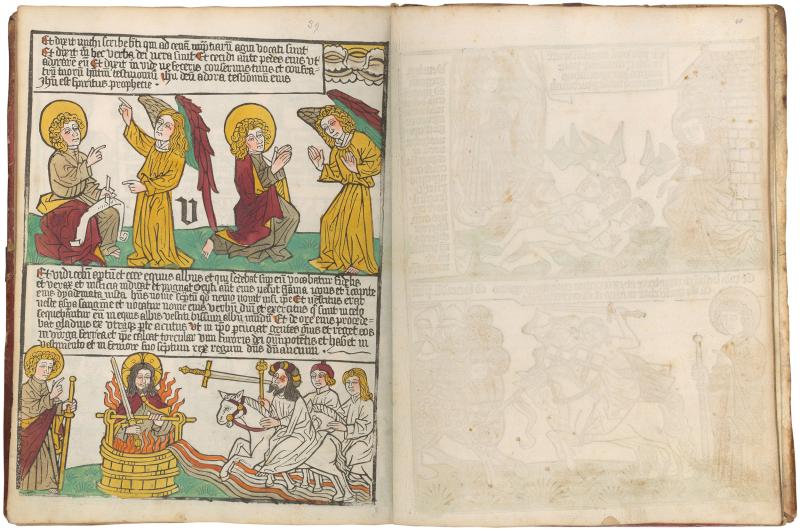 39
Et dixit michi scribe bti qui ad cenam nuptiarum agni vocati sunt
Et dixit m hec verba dei vera sunt Et cecidi ante pedes eius vt
adorare eu Et dixit m vide ne feceris conseruus tuus et confra-
tru tuoru testimoniu ihu deu adora testimoniu eius
Ihu est spiritus prophecie
U
Et vidi celu aptu et ecce equus albus et qui sedebat sup eu vocabatur fidelis
et verax et iusticia iudicat et pugnat oculi aut eius velut flama ignis et i capite
eius dyademata multa hns nome scriptu qd nemo nouit nisi ipe Et vestitus erat
veste aspsa sanguine et vocatur nome eius verbu dni et exercitus q sunt in celo
sequebantur eu in equis albis vestiti bissinu albu mudu Et de ore eius procede-
bat gladius ex utraq pte acutus ut in ipo percuciat gentes et reget eos
in virga ferrea et ipe calcat torcular vini furoris dei omnipotetis et habet in
vestimento et in femore suo scriptum rex regum dns dnancium
40